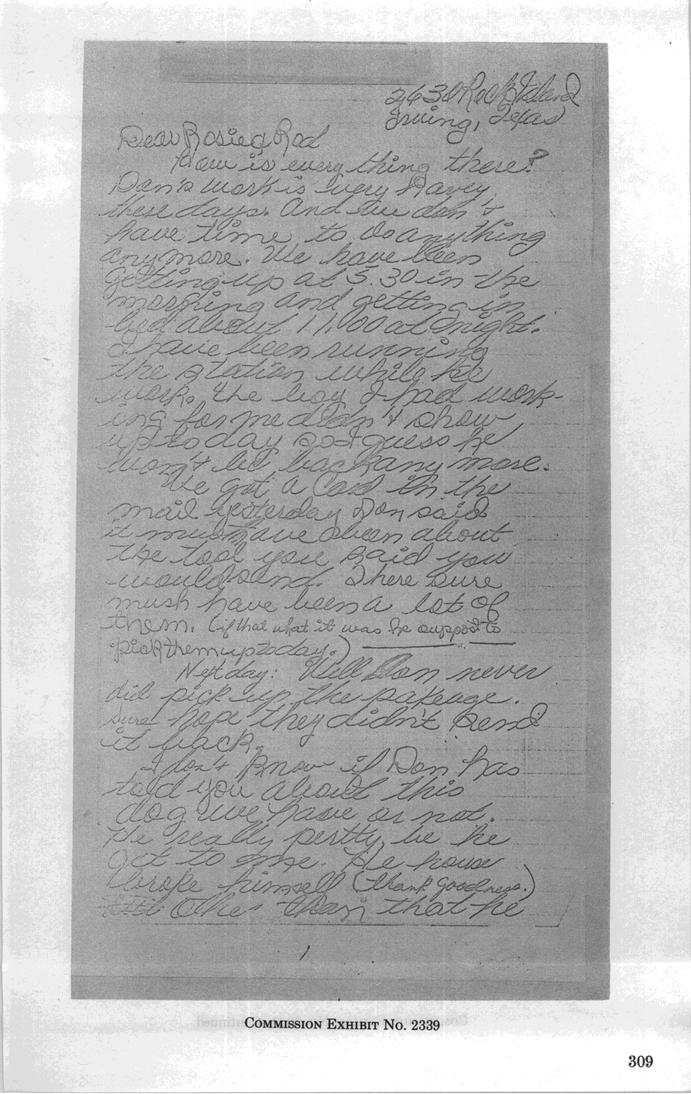 2630 Rock Island
Irving, Texas
Dear Rosie & Rod
How is every thing there?
Don's work is very heavey
these days. And we don't
have time to do anything
anymore. We have been
getting up at 5:30 in the
morning and getting in
bed about 11:00 at night.
I have been running
the station while he
works. the boy I had work-
ing for me didn't show
up today so I guess he
won't be back any more.
We got a Card in the
mail yesterday Don said
it must have been about
the tool you said you
would send. There sure
mush have been a lot of
them. (if that what it was he suppost to
pick them up today.)
Next day: Well Don never
did pick up the pakeage.
Sure hope they didn't send
it back.
I don't know if Don has
told you about this
dog we have or not.
He really pertty, be he
to me. He house
broke himself (thank goodness.)
Other than that he
1
COMMISSION EXHIBIT NO. 2339
309